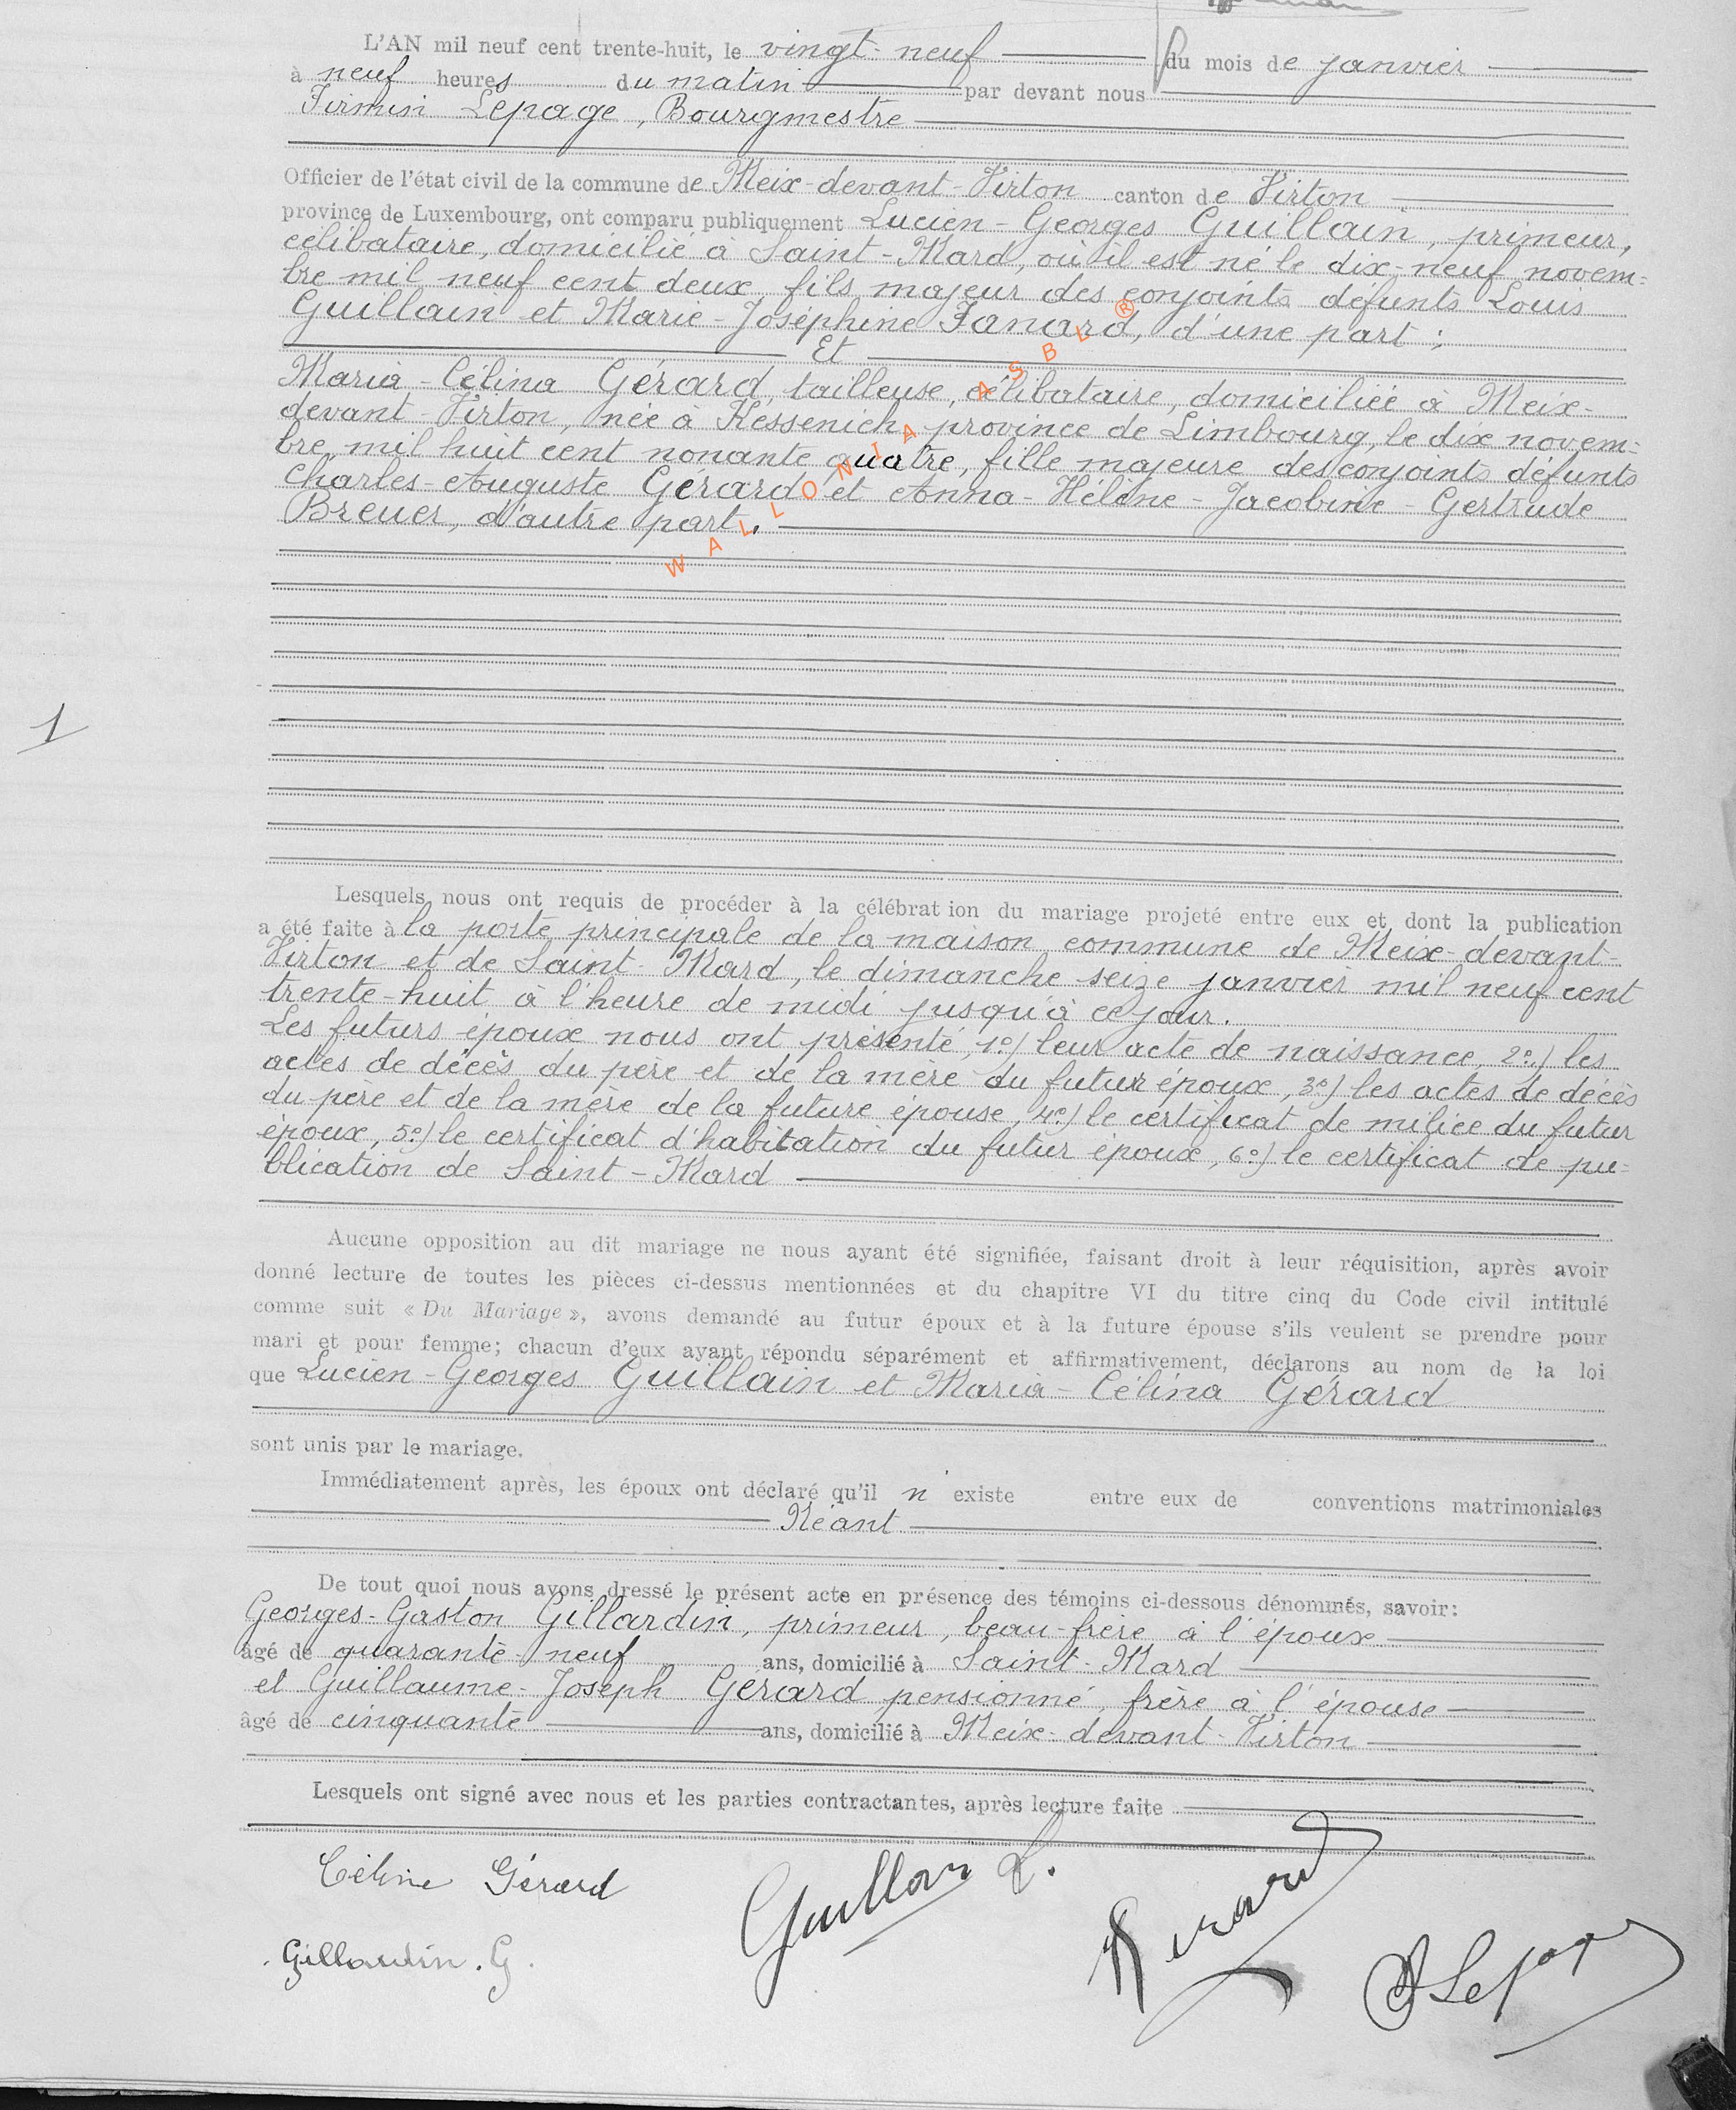 L'AN mil neuf cent trente-huit, le vingt-neuf du mois de janvier
à neuf heures du matin par devant nous
Firmin Lepage, Bourgmestre
Officier de l'état civil de la commune de Meix-devant-Virton canton de Virton
province de Luxembourg, ont comparu publiquement Lucien-Georges Guillain, primeur,
célibataire, domicilié à Saint-Mard, où il est né le dix-neuf novem=
bre mil neuf cent deux, fils majeur des conjoints défunts Louis
Guillain et Marie-Joséphine Fanard, d'une part;
Et
Maria-Célina Gérard, tailleuse, célibataire, domiciliée à Meix-
devant-Virton, née à Kessenich, province de Limbourg, le dix novem=
bre mil huit cent nonante quatre, fille majeure des conjoints défunts
Charles-Auguste Gérard et Anna-Hélène-Jacobine-Gertrude
Breuer, d'autre part.
WALLONIA ASBL ®
1
Lesquels nous ont requis de procéder à la célébration du mariage projeté entre eux et dont la publication
a été faite à la porte principale de la maison commune de Meix-devant-
Virton et de Saint-Mard, le dimanche seize janvier mil neuf cent
trente-huit à l'heure de midi jusqu'à ce jour.
Les futurs époux nous ont présenté, 1º) leur acte de naissance, 2º) les
actes de décès du père et de la mère du futur époux, 3º) les actes de décès
du père et de la mère de la future épouse, 4º) le certificat de milice du futur
époux, 5º) le certificat d'habitation du futur époux, 6º) le certificat de pu=
blication de Saint-Mard
Aucune opposition au dit mariage ne nous ayant été signifiée, faisant droit à leur réquisition, après avoir
donné lecture de toutes les pièces ci-dessus mentionnées et du chapitre VI du titre cinq du Code civil intitulé
comme suit « Du Mariage », avons demandé au futur époux et à la future épouse s'ils veulent se prendre pour
mari et pour femme; chacun d'eux ayant répondu séparément et affirmativement, déclarons au nom de la loi
que Lucien-Georges Guillain et Maria-Célina Gérard
sont unis par le mariage.
Immédiatement après, les époux ont déclaré qu'il n'existe entre eux de conventions matrimoniales
Néant
De tout quoi nous avons dressé le présent acte en présence des témoins ci-dessous dénommés, savoir:
Georges-Gaston Gillardin, primeur, beau-frère à l'époux
âgé de quarante-neuf ans, domicilié à Saint-Mard
et Guillaume-Joseph Gérard pensionné, frère à l'épouse
âgé de cinquante ans, domicilié à Meix-devant-Virton
Lesquels ont signé avec nous et les parties contractantes, après lecture faite
Céline Gérard
Guillain L.
Gérard
Gillardin. G.
Lepage